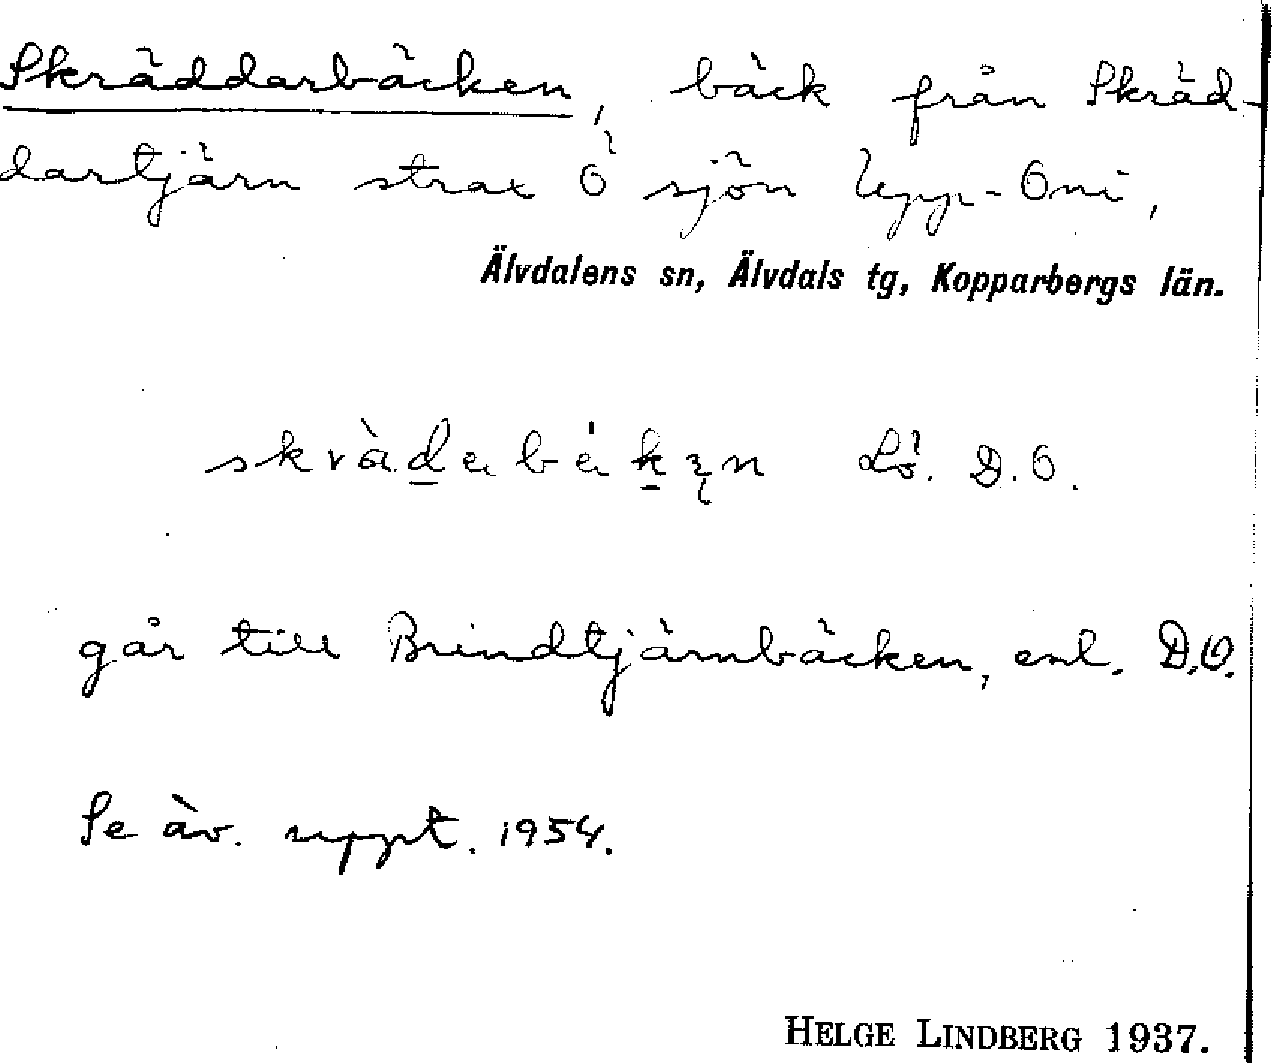 Skräddarbäcken, bäck från Skräd-
dartjärn strax Ö sjön Upp-Omi,
Älvdalens sn, Älvdals tg, Kopparbergs län.
Lö. D.O.
går till Brindtjärnbäcken, enl. D.O.
Se äv. uppt. 1954.
HELGE LINDBERG 1937.